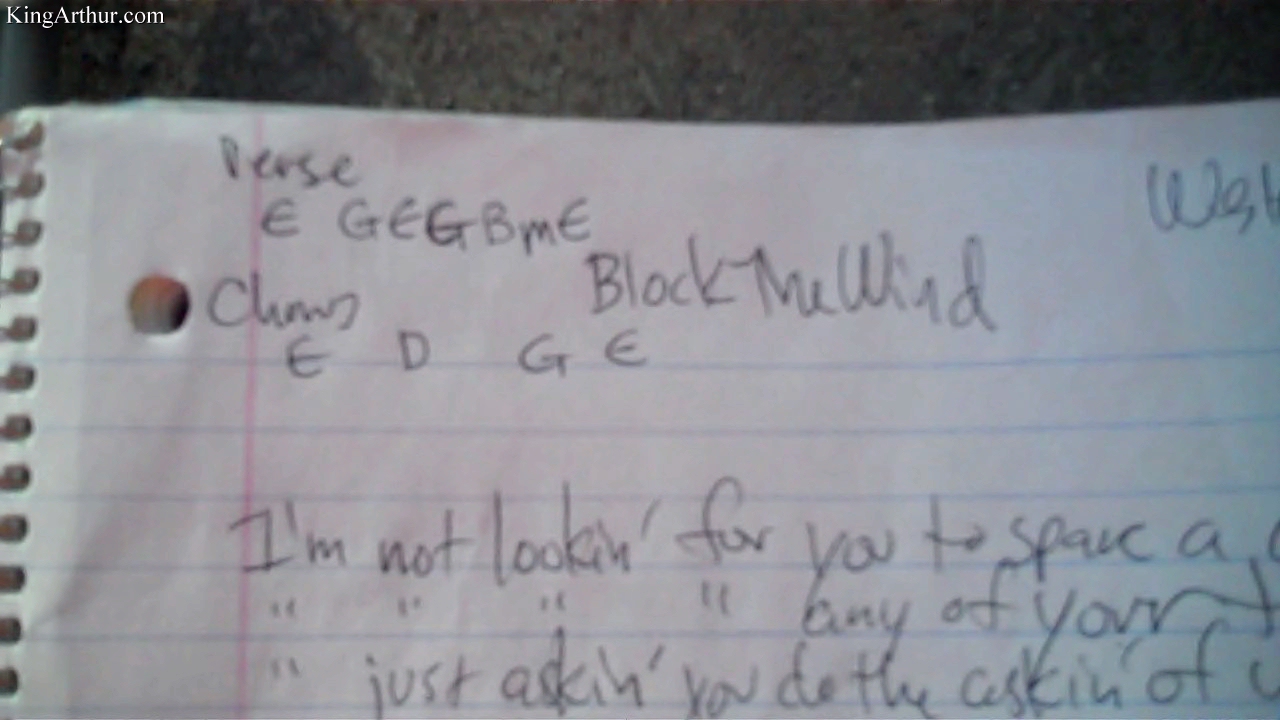 KingArthur.com
Verse
E G E G Bm E
Chorus
Block The Wind
E D G E
I'm not lookin' for you to spare a
" " " " any of your
" just askin' you do the askin' of